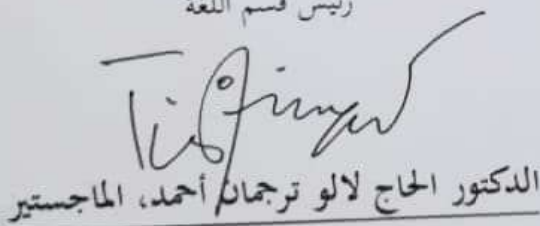 رئيس قسم اللغة
الدكتور الحاج لالو ترجمان أحمد، الماجستير